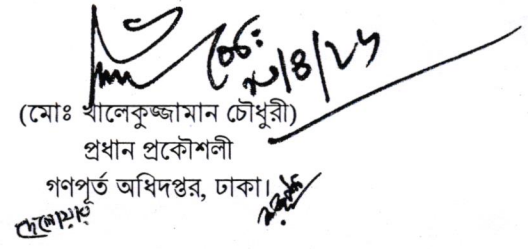 ২০/৪/২৬
(মোঃ খালেকুজ্জামান চৌধুরী)
প্রধান প্রকৌশলী
গণপূর্ত অধিদপ্তর, ঢাকা।
দেলোয়ার